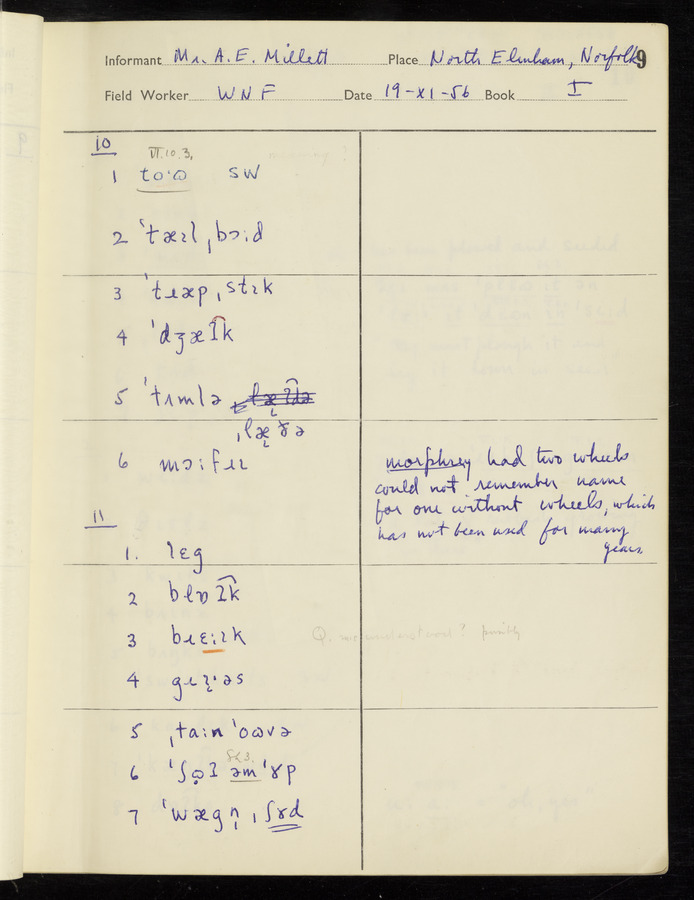 Informant Mr. A. E. Millett Place North Elmham, Norfolk 9
Field Worker WNF Date 19-XI-56 Book I
10
VI.10.3,
1 toˑɷ SW
2 ˈtæɪl ˌbɔːd
3 ˈtɹæpˌstɪk
4 ˈdʒæk
5 ˈtʌmlə
ˌlæɤə
6 mɔːfɹɪ
morphrey had two wheels
could not remember name
for one without wheels, which
has not been used for many
years.
11
1. leg
2 blɒk
3 bɹɛːɪk Q. misunderstood? possibly
4
5 ˌtaːn ˈoɷvə
6 əm ˈɤp
7 ˈwægn̩ ˌʃɤd